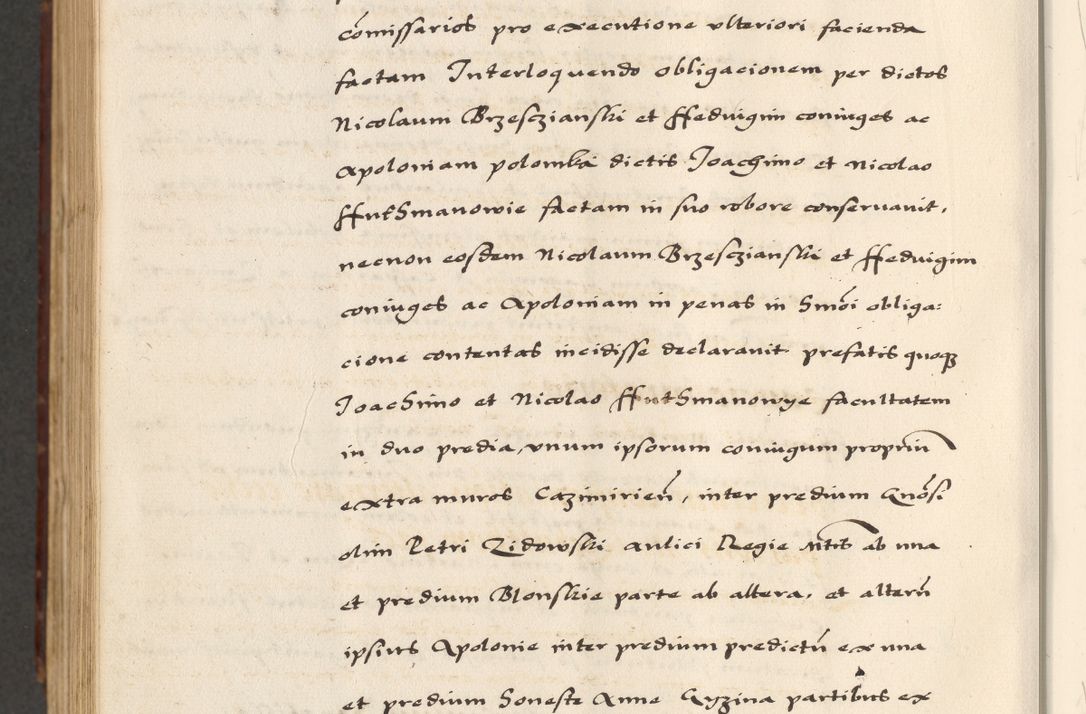 cōmissarios pro executione vlteriori facienda
factam Interloquendo obligacionem per dictos
Nicolaum Brzesczianski et Hedvigim coniuges ac
Apoloniam polomka dictis Joachimo et Nicolao
Huthmanowie factam in suo robore conservavit,
necnon eosdem Nicolaum Brzesczianski et Hedvigim
coniuges ac Apoloniam in penas in hmōi obliga:
cione contentas incidisse declaravit prefatis quoq
Joachimo et Nicolao Huthmanowye facultatem
in duo predia, vnum ipsorum coniugum propriū
extra muros Cazimirień, inter predium Gnōsi
olim Petri Zidowski aulici Regie Mtis ab vna
et predium Blonskie parte ab altera, et alterū
ipsius Apolonie inter predium predictū ex vna
et predium honeste Anne Gyzina partibus ex